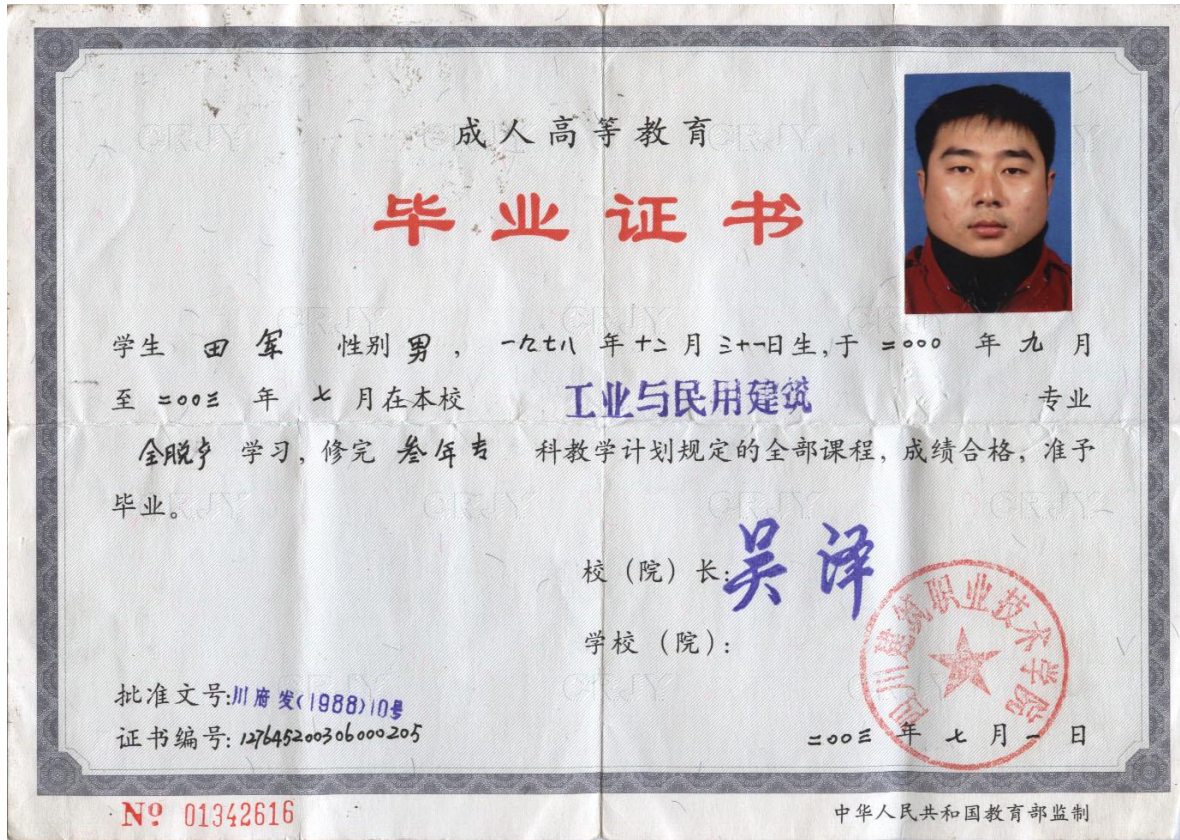 成人高等教育
毕业证书
学生 田军 性别 男 ，一九七八 年 十二 月 三十一日生，于 二〇〇〇 年 九 月
至 二〇〇三 年 七 月在本校 工业与民用建筑 专业
全脱产 学习，修完 叁年专 科教学计划规定的全部课程，成绩合格，准予
毕业。
校（院）长：吴泽
学校（院）：
四川建筑职业技术学院
批准文号：川府发(1988)10号
证书编号：127645200306000205
二〇〇三 年 七 月 一 日
№ 01342616
中华人民共和国教育部监制
CRJY